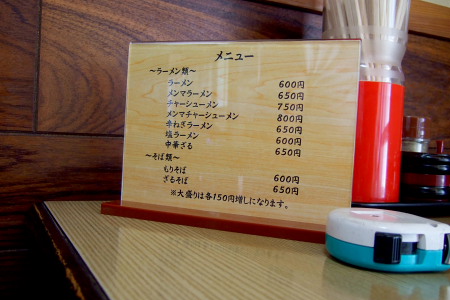 メニュー
～ラーメン類～
ラーメン 600円
メンマラーメン 650円
チャーシューメン 750円
メンマチャーシューメン 800円
辛ねぎラーメン 650円
塩ラーメン 600円
中華ざる 650円
～そば類～
もりそば 600円
ざるそば 650円
※大盛りは各150円増しになります。